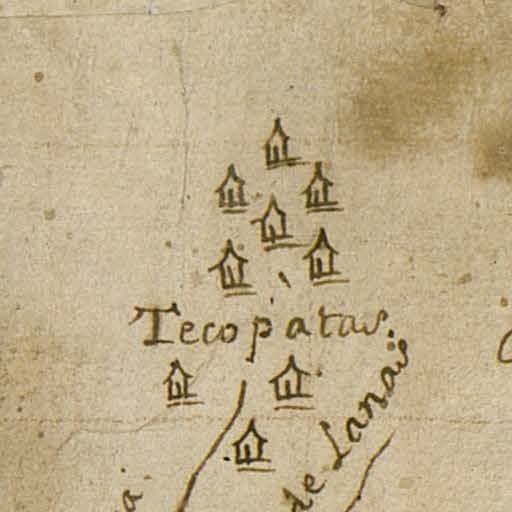 Tecopatas.
de Lanas